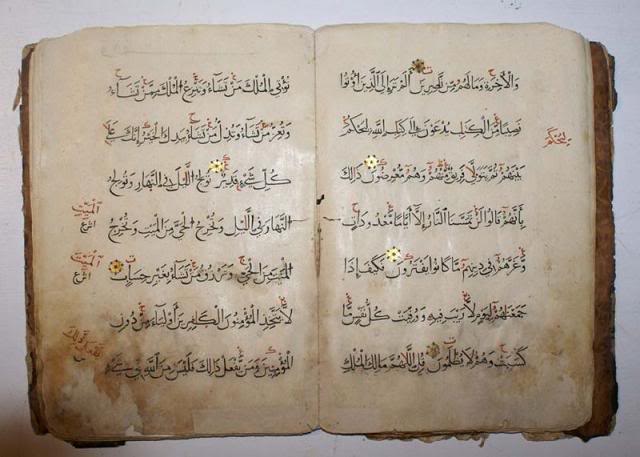 والاخرة وما لهم من نصرين الم تر الى الذين اوتوا
نصيبا من الكتب يدعون الى كتب الله ليحكم
بينهم ثم يتولى فريق منهم وهم معرضون ذلك
بانهم قالوا لن تمسنا النار الا اياما معدودات
وغرهم في دينهم ما كانوا يفترون فكيف اذا
جمعناهم ليوم لا ريب فيه ووفيت كل نفس ما
كسبت وهم لا يظلمون قل اللهم مالك الملك
ليحكم
تؤتي الملك من تشاء وتنزع الملك ممن تشاء
وتعز من تشاء وتذل من تشاء بيدك الخير انك على
كل شيء قدير تولج الليل في النهار وتولج
النهار في الليل وتخرج الحي من الميت وتخرج
الميت من الحي وترزق من تشاء بغير حساب
لا يتخذ المؤمنون الكافرين اولياء من دون
المؤمنين ومن يفعل ذلك فليس من الله في شيء
الميت
الميت